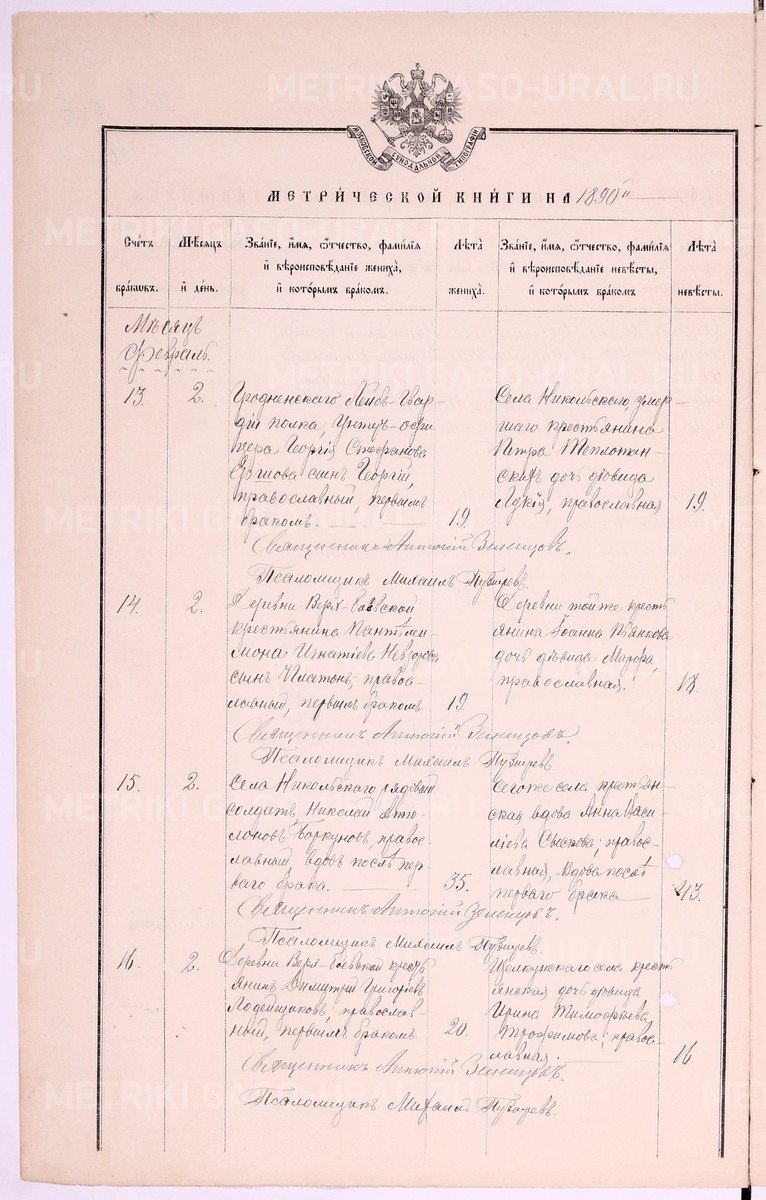 МОСКОВСКОЙ СѴНОДАЛЬНОЙ ТИПОГРАФІИ
МЕТРИ́ЧЕСКОЙ КНИ́ГИ НА 1890й
Сче́тъ бра́кωвъ.
Мѣ́сѧцъ и҆ де́нь.
Зва́нїе, и҆́мѧ, ѻ҆́тчество, фами́лїѧ
и҆ вѣроисповѣ́данїе жениха̀,
и҆ кото́рымъ бра́комъ.
Лѣта̀ жениха̀.
Зва́нїе, и҆́мѧ, ѻ҆́тчество, фами́лїѧ
и҆ вѣроисповѣ́данїе невѣ́сты,
и҆ кото́рымъ бра́комъ
Лѣта̀ невѣ́сты.
Мѣсяцъ
Февраль.
13. 2.
Гродненскаго Лейбъ-Гвар-
діи полка, Унтеръ-офи
цера Георгія Стефанова
сынъ Георгій,
православный, первымъ
бракомъ. 19.
Села Никольскаго, умер-
шаго крестьянина
Петра
дочь дѣвица
Лукія, православная 19.
Священникъ Антоній Зеленцовъ.
Псаломщикъ Михаилъ
14. 2.
Деревни Верх-Боевской
крестьянина Пантелеи-
мона Игнатіева Невзорова
сынъ Платонъ, право-
славный, первымъ бракомъ. 19.
Деревни той же кресть
янина Іоанна Пьянкова
дочь дѣвица Марфа,
православная. 18.
Священникъ Антоній Зеленцовъ.
Псаломщикъ Михаилъ
15. 2.
Села Никольскаго рядовой
солдатъ, Николай
правос-
лавный, вдовъ послѣ пер-
ваго брака. 35.
сего же села крестьян-
ская вдова Анна Васи-
ліева право-
славная, вдова послѣ
перваго брака 43.
Священникъ Антоній Зеленцовъ.
Псаломщикъ Михаилъ
16. 2.
Деревни Верх-Боевской кресть
янинъ Димитрій Григоріевъ
Лодейщиковъ, православ-
ный, первымъ бракомъ. 20.
Щелкунскаго села кресть
янская дочь дѣвица
Ирина Тимофеева
Трофимова, правос-
лавная. 16.
Священникъ Антоній Зеленцовъ.
Псаломщикъ Михаилъ
METRIKI.GASO-URAL.RU